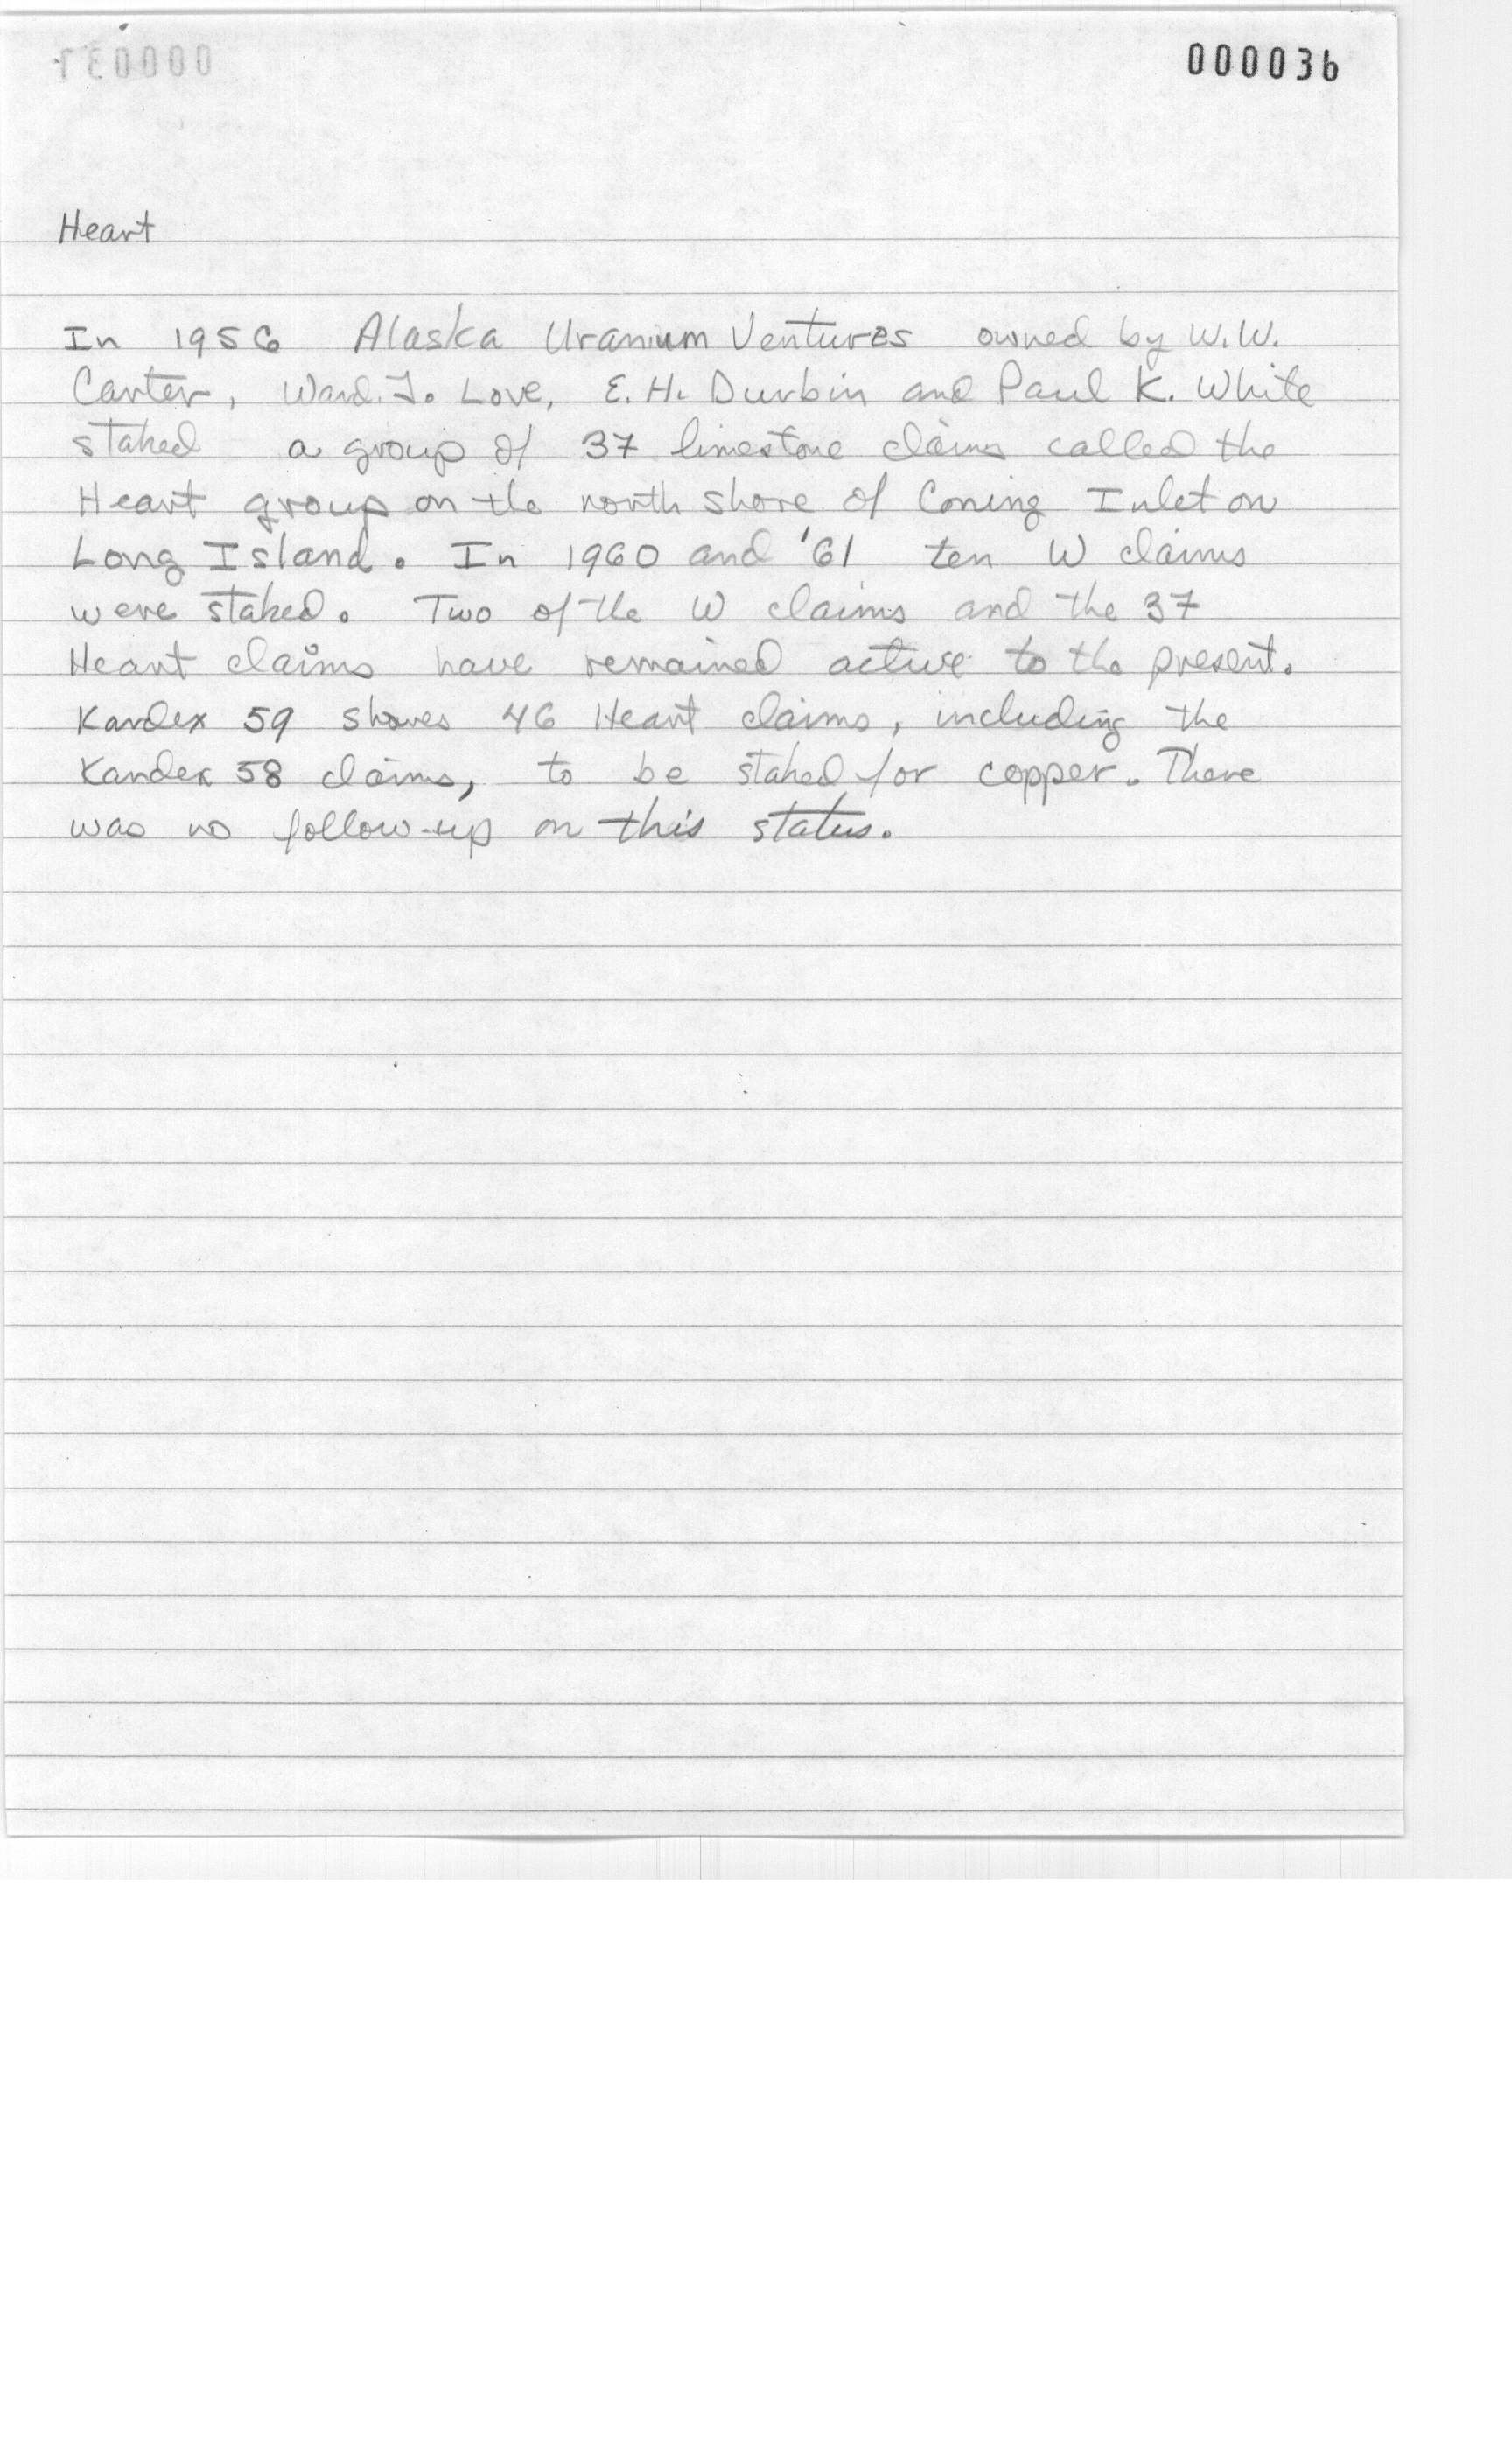 000036
Heart
In 1956 Alaska Uranium Ventures owned by W.W.
Carter, Ward. J. Love, E. H. Durbin and Paul K. White
staked a group of 37 limestone claims called the
Heart group on the north shore of Coning Inlet on
Long Island. In 1960 and '61 ten W claims
were staked. Two of the W claims and the 37
Heart claims have remained active to the present.
Kardex 59 shows 46 Heart claims, including the
Kardex 58 claims, to be staked for copper. There
was no follow-up on this status.